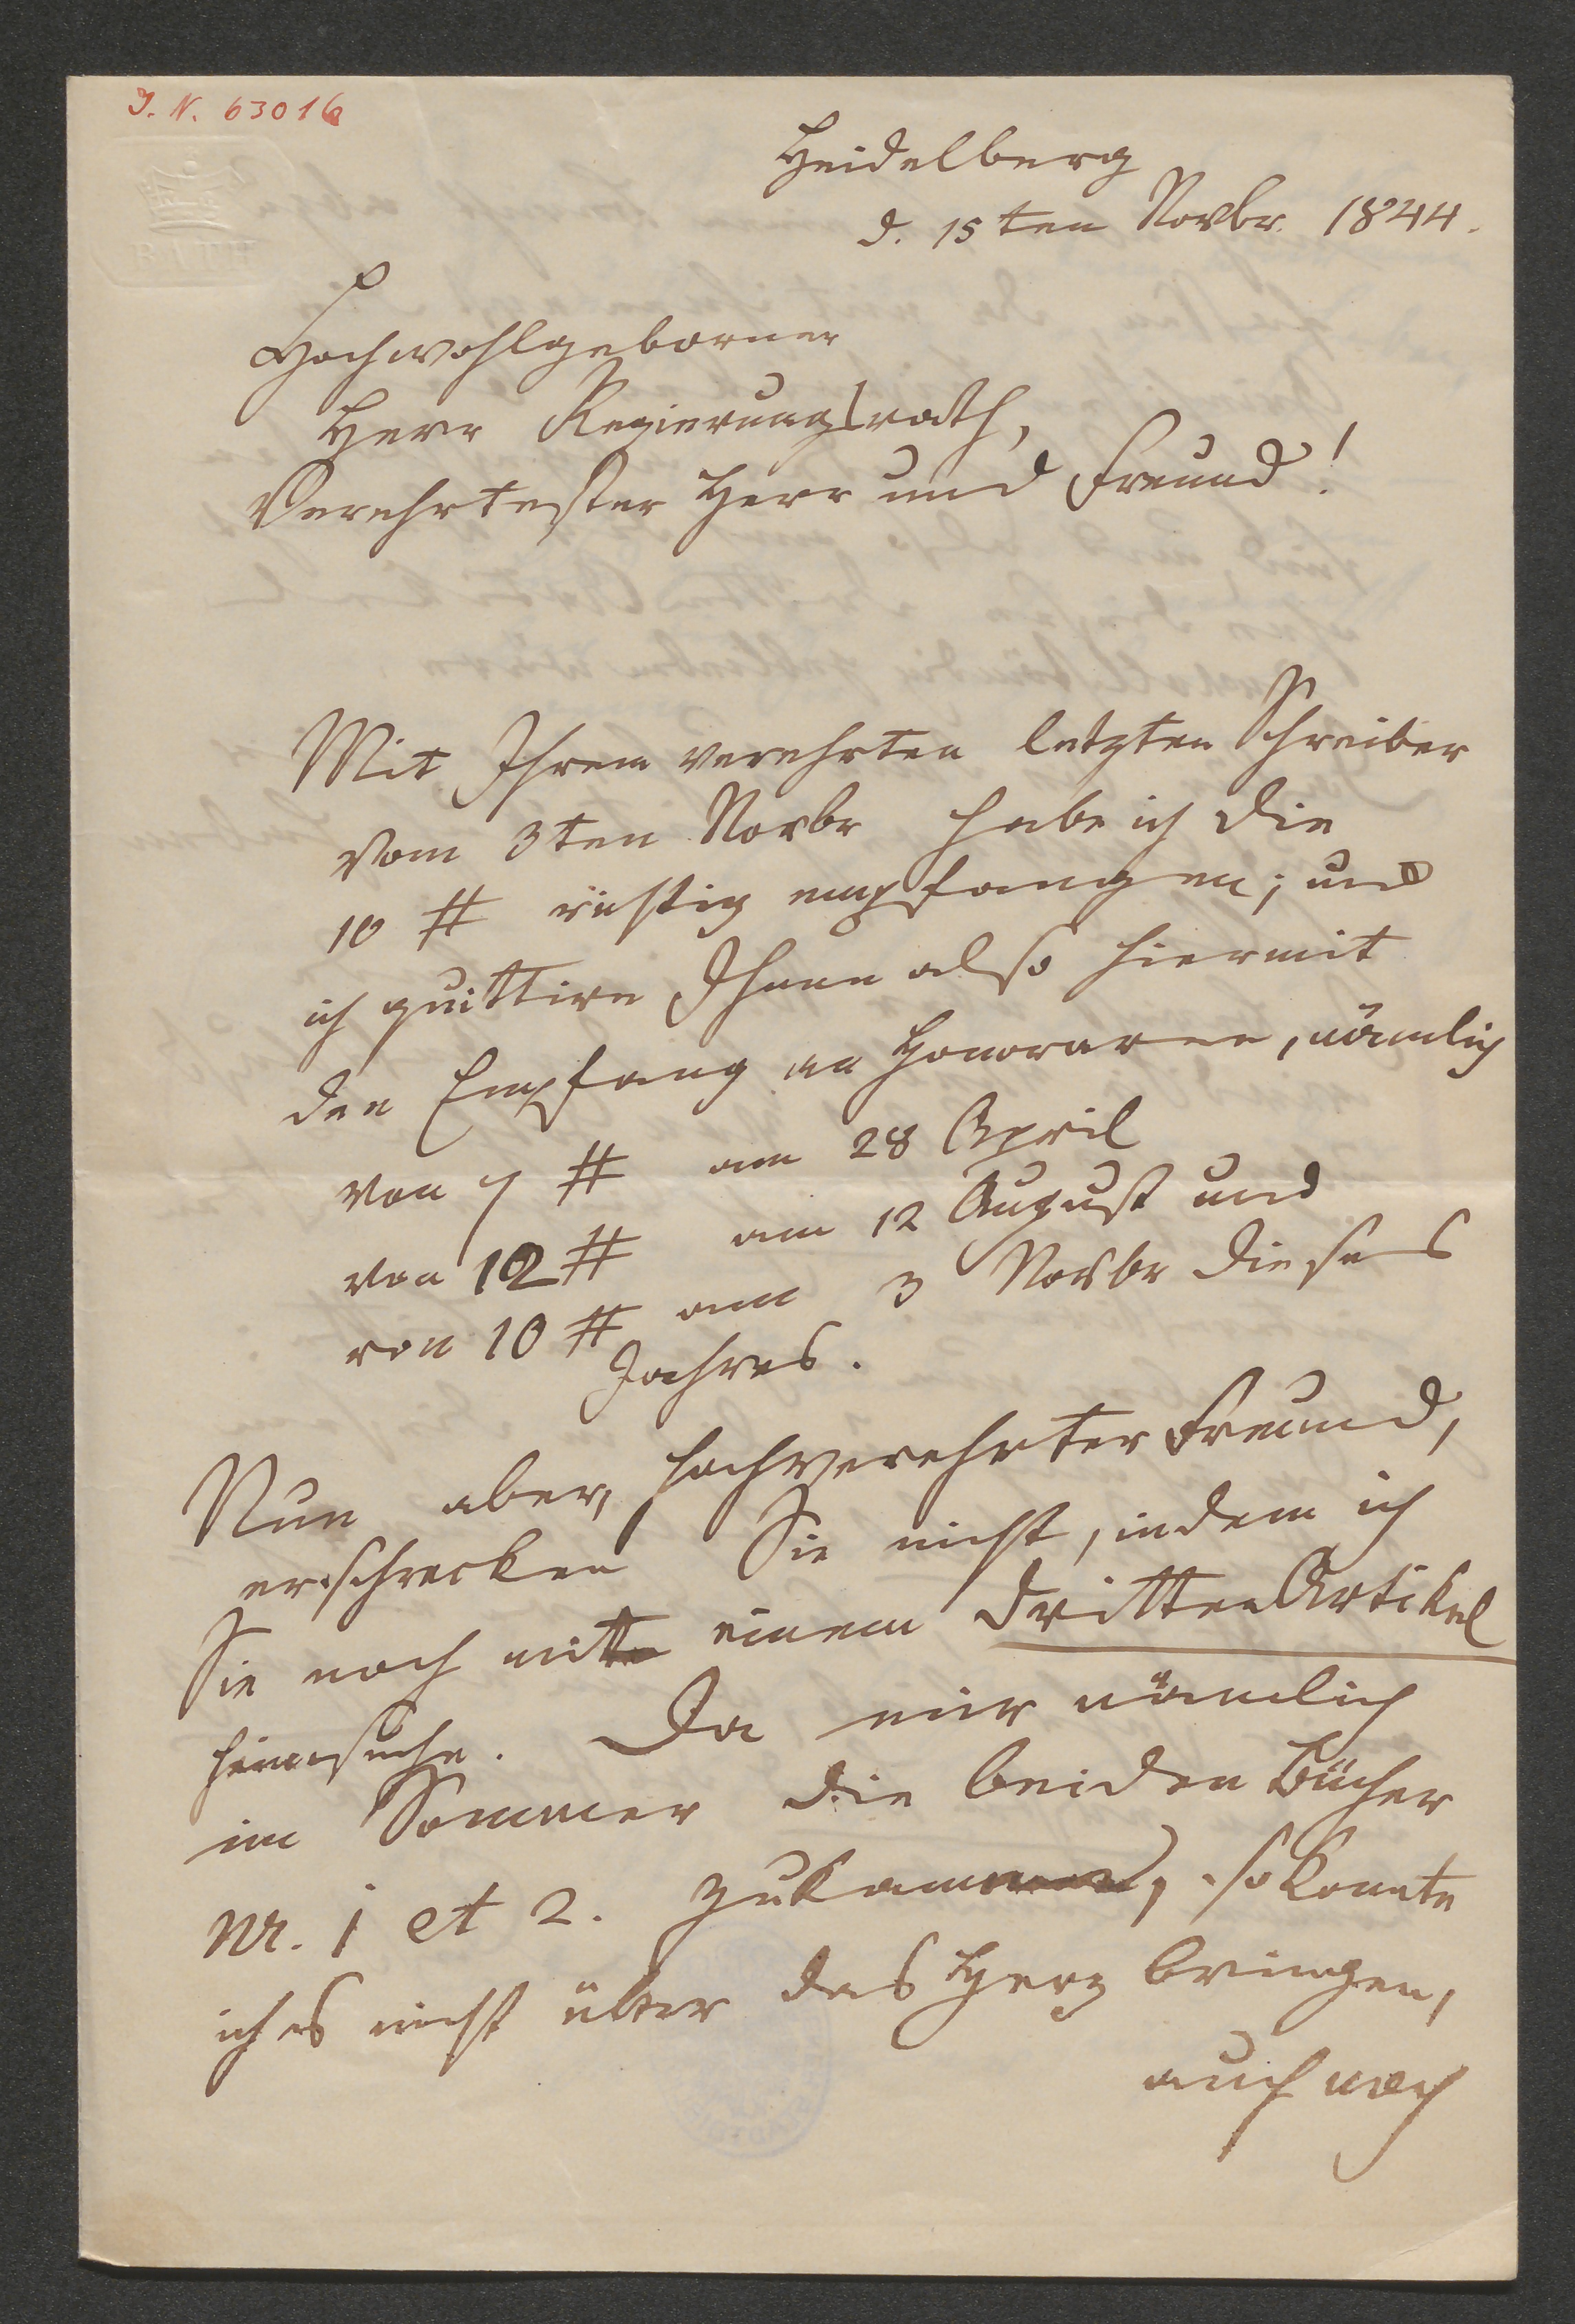 J. N. 63016
Heidelberg
d. 15ten Novbr. 1844.
Hochwohlgeborner
Herr Regierungsrath,
Verehrtester Herr und Freund!
Mit Ihrem verehrten letzten Schreiben
vom 3ten Novbr habe ich die
10 # richtig empfangen; und
ich quittire Ihnen also hiermit
den Empfang an Honoraren, nämlich
von 7 # am 28 April
von 12 # am 12 August und
von 10 # am 3 Novbr dieses
Jahres.
Nun aber, hochverehrter Freund,
erschrecken Sie nicht, indem ich
Sie noch mit einem dritten Artikel
heimsuche. Da mir nämlich
im Sommer die beiden Bücher
Nr. 1 et 2. zukamen, so konnte
ich es nicht über das Herz bringen,
auch noch